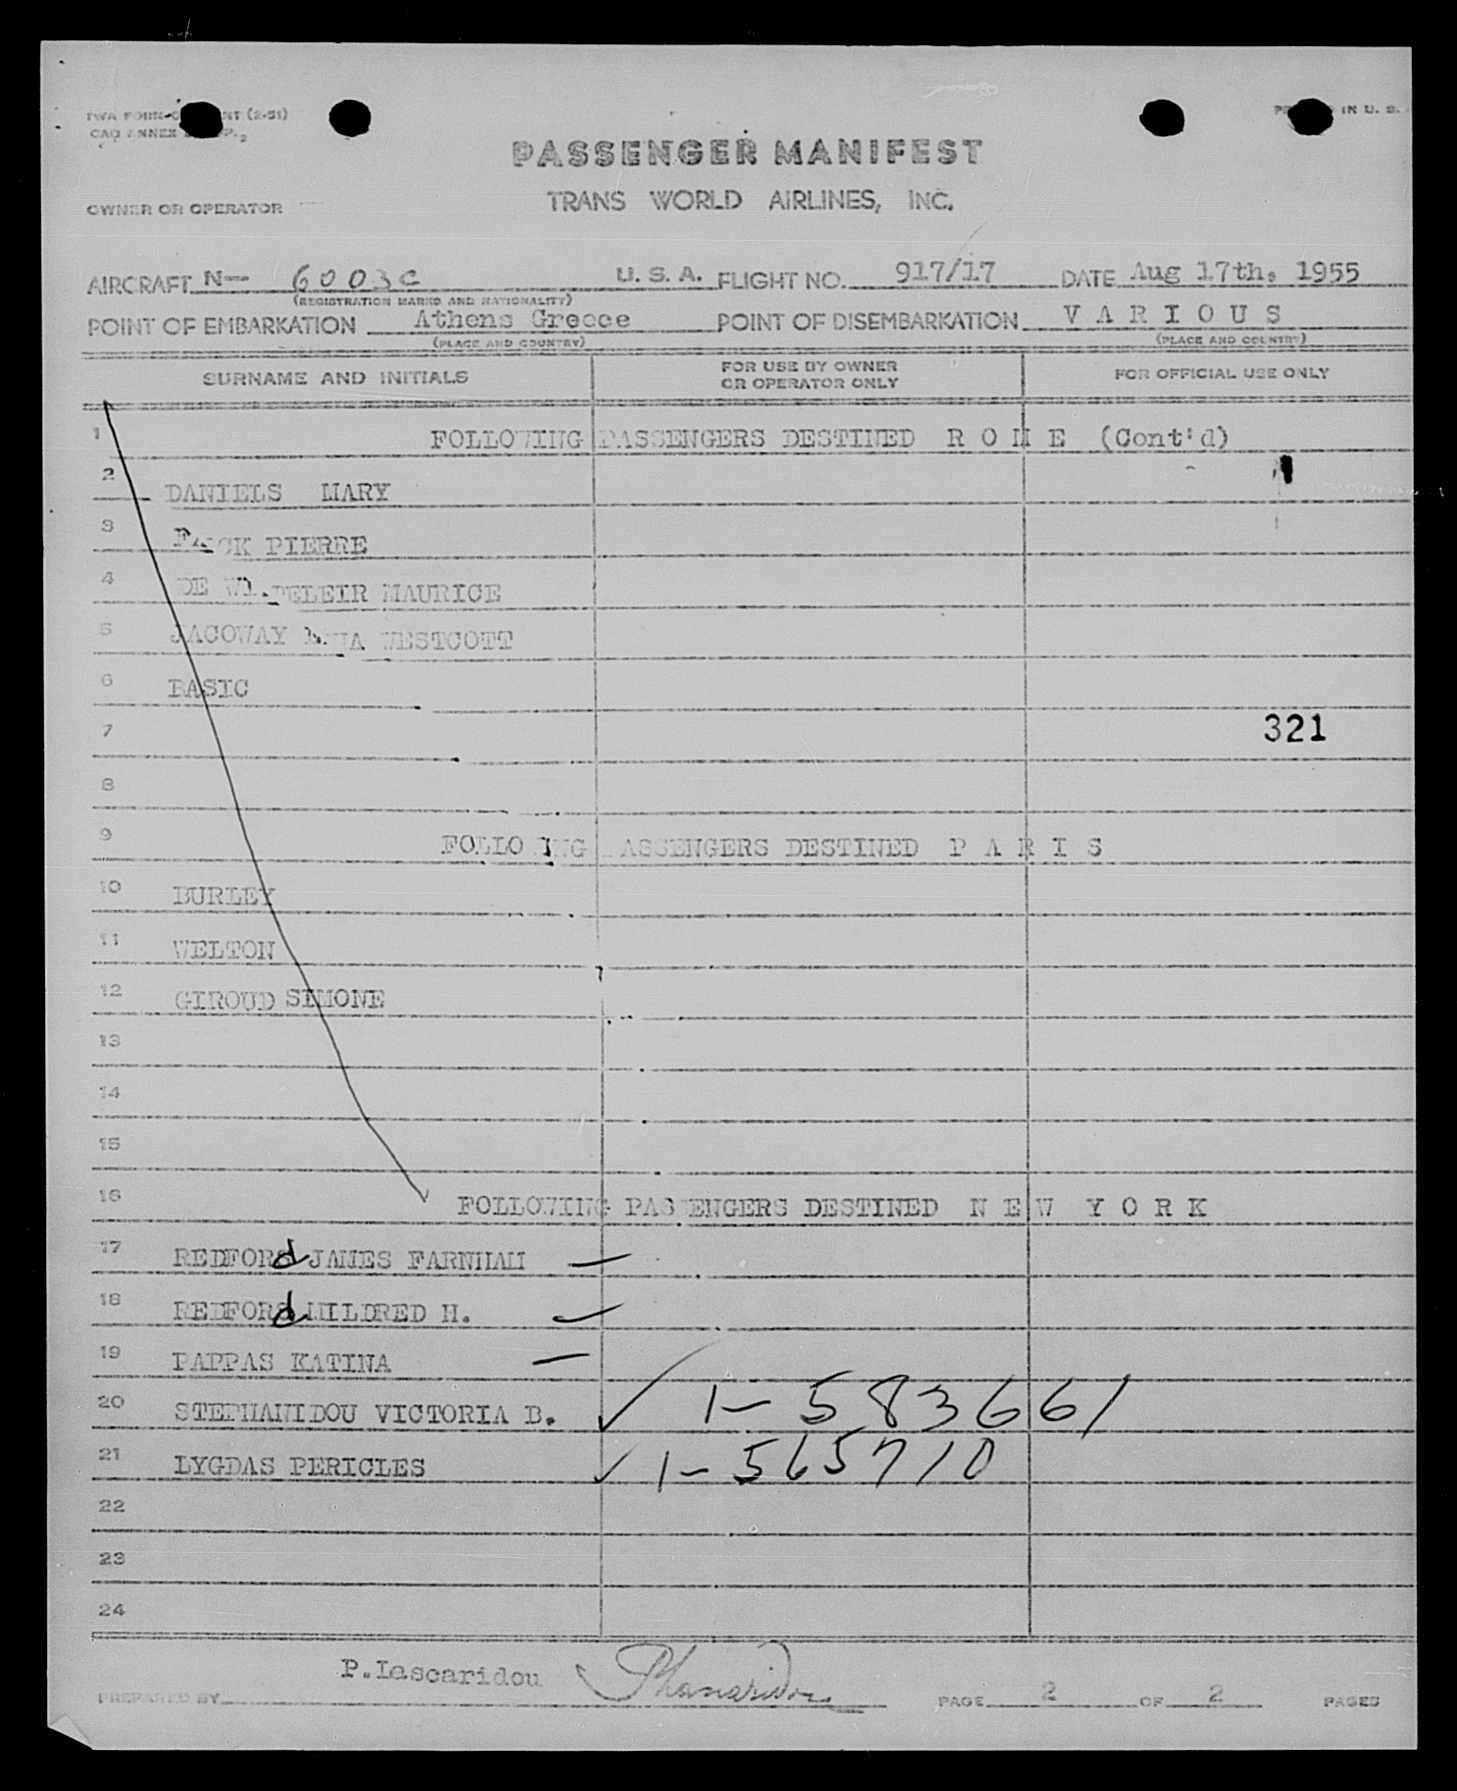 TWA FORM (2-51) PRINTED IN U. S.
CAO ANNEX
PASSENGER MANIFEST
OWNER OR OPERATOR TRANS WORLD AIRLINES, INC.
AIRCRAFT N- 6003C U. S. A. FLIGHT NO. 917/17 DATE Aug 17th, 1955
(REGISTRATION MARKS AND NATIONALITY)
POINT OF EMBARKATION Athens Greece POINT OF DISEMBARKATION V A R I O U S
(PLACE AND COUNTRY) (PLACE AND COUNTRY)
SURNAME AND INITIALS FOR USE BY OWNER OR OPERATOR ONLY FOR OFFICIAL USE ONLY
1 FOLLOWING PASSENGERS DESTINED R O M E (Cont'd)
2 DANIELS MARY
3 PIERRE
4 DE MAURICE
5 JACOWAY WESTCOTT
6 BASIC
7 321
8
9 FOLLOWING PASSENGERS DESTINED P A R I S
10 BURLEY
11 WELTON
12 GIROUD SIMONE
13
14
15
16 FOLLOWING PASSENGERS DESTINED N E W Y O R K
17 REDFORd JAMES FARNHAM —
18 REDFORd MILDRED H. —
19 PAPPAS KATINA —
20 STEPHANIDOU VICTORIA B. ✓ 1-583661
21 LYGDAS PERICLES ✓ 1-565710
22
23
24
PREPARED BY P.Lascaridou PAGE 2 OF 2 PAGES